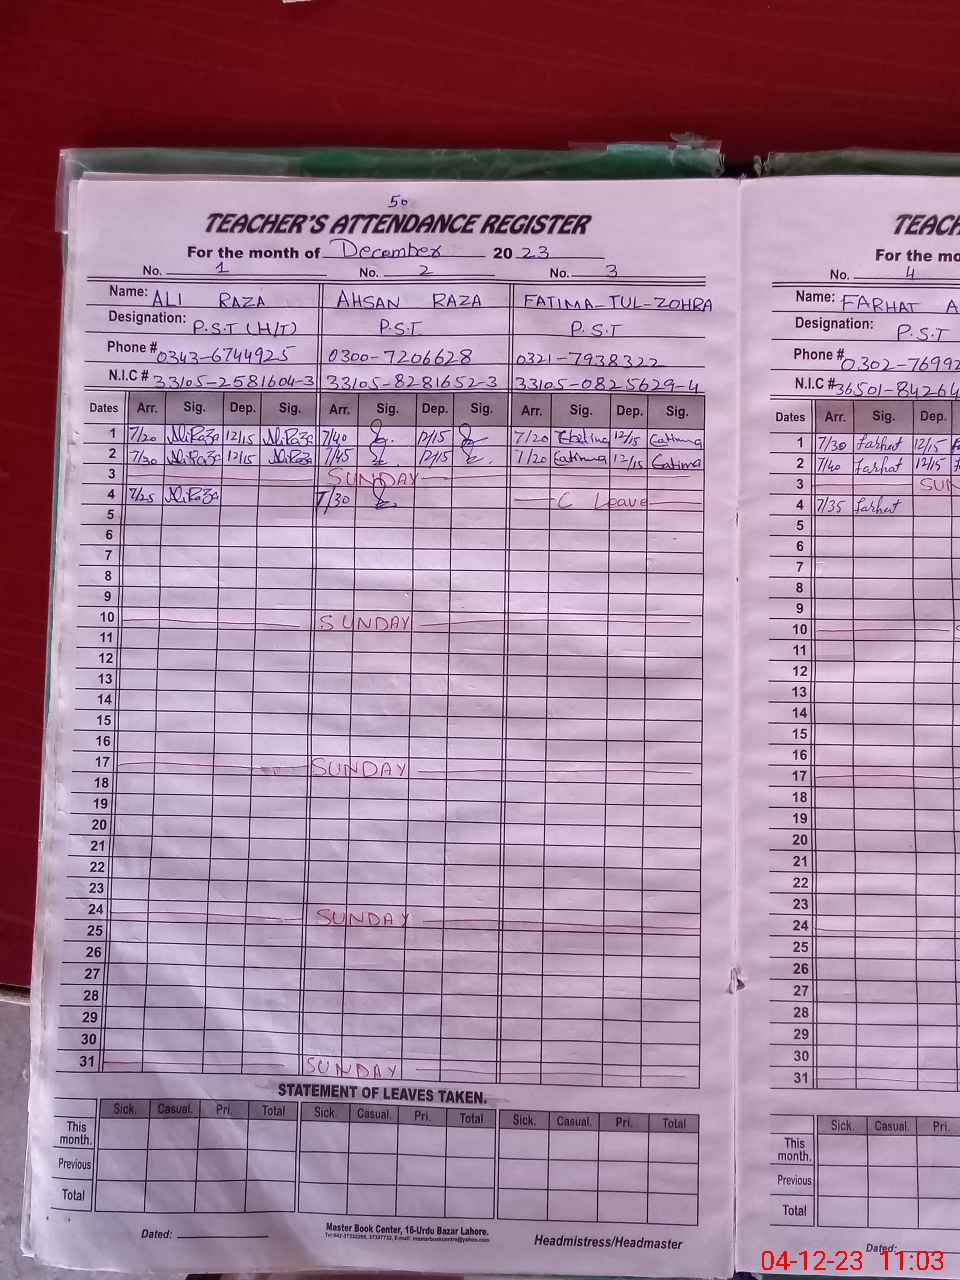 50
TEACHER'S ATTENDANCE REGISTER
For the month of December 2023
No. 1 No. 2 No. 3
Name: ALI RAZA AHSAN RAZA FATIMA-TUL-ZOHRA
Designation: P.S.T (H/T) P.S.T P.S.T
Phone # 0343-6744925 0300-7206628 0321-7938322
N.I.C # 33105-2581604-3 33105-8281652-3 33105-0825629-4
Dates Arr. Sig. Dep. Sig. Arr. Sig. Dep. Sig. Arr. Sig. Dep. Sig.
1 7/20 AliRaza 12/15 AliRaza 7/40 12/15 7/20 12/15 Fatima
2 7/30 AliRaza 12/15 AliRaza 7/45 12/15 7/20 Fatima 12/15 Fatima
3 SUNDAY
4 7/25 AliRaza 7/30 C Leave
5
6
7
8
9
10 SUNDAY
11
12
13
14
15
16
17 SUNDAY
18
19
20
21
22
23
24 SUNDAY
25
26
27
28
29
30
31 SUNDAY
STATEMENT OF LEAVES TAKEN.
Sick. Casual. Pri. Total Sick. Casual. Pri. Total Sick. Casual. Pri. Total
This month.
Previous
Total
Master Book Center, 16-Urdu Bazar Lahore.
Dated: Headmistress/Headmaster
TEACH
For the mo
No. 4
Name: FARHAT A
Designation: P.S.T
Phone # 0302-76992
N.I.C # 36501-84264
Dates Arr. Sig. Dep.
1 7/30 farhat 12/15
2 7/40 farhat 12/15
3 SUN
4 7/35 farhat
5
6
7
8
9
10 S
11
12
13
14
15
16
17
18
19
20
21
22
23
24
25
26
27
28
29
30
31
Sick. Casual. Pri.
This month.
Previous
Total
Dated:
04-12-23 11:03